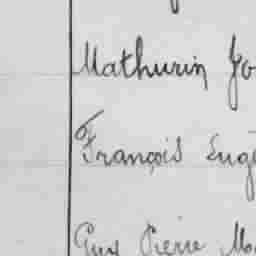 Mathurin Jo
François Eugè
Guy Pierre Ma